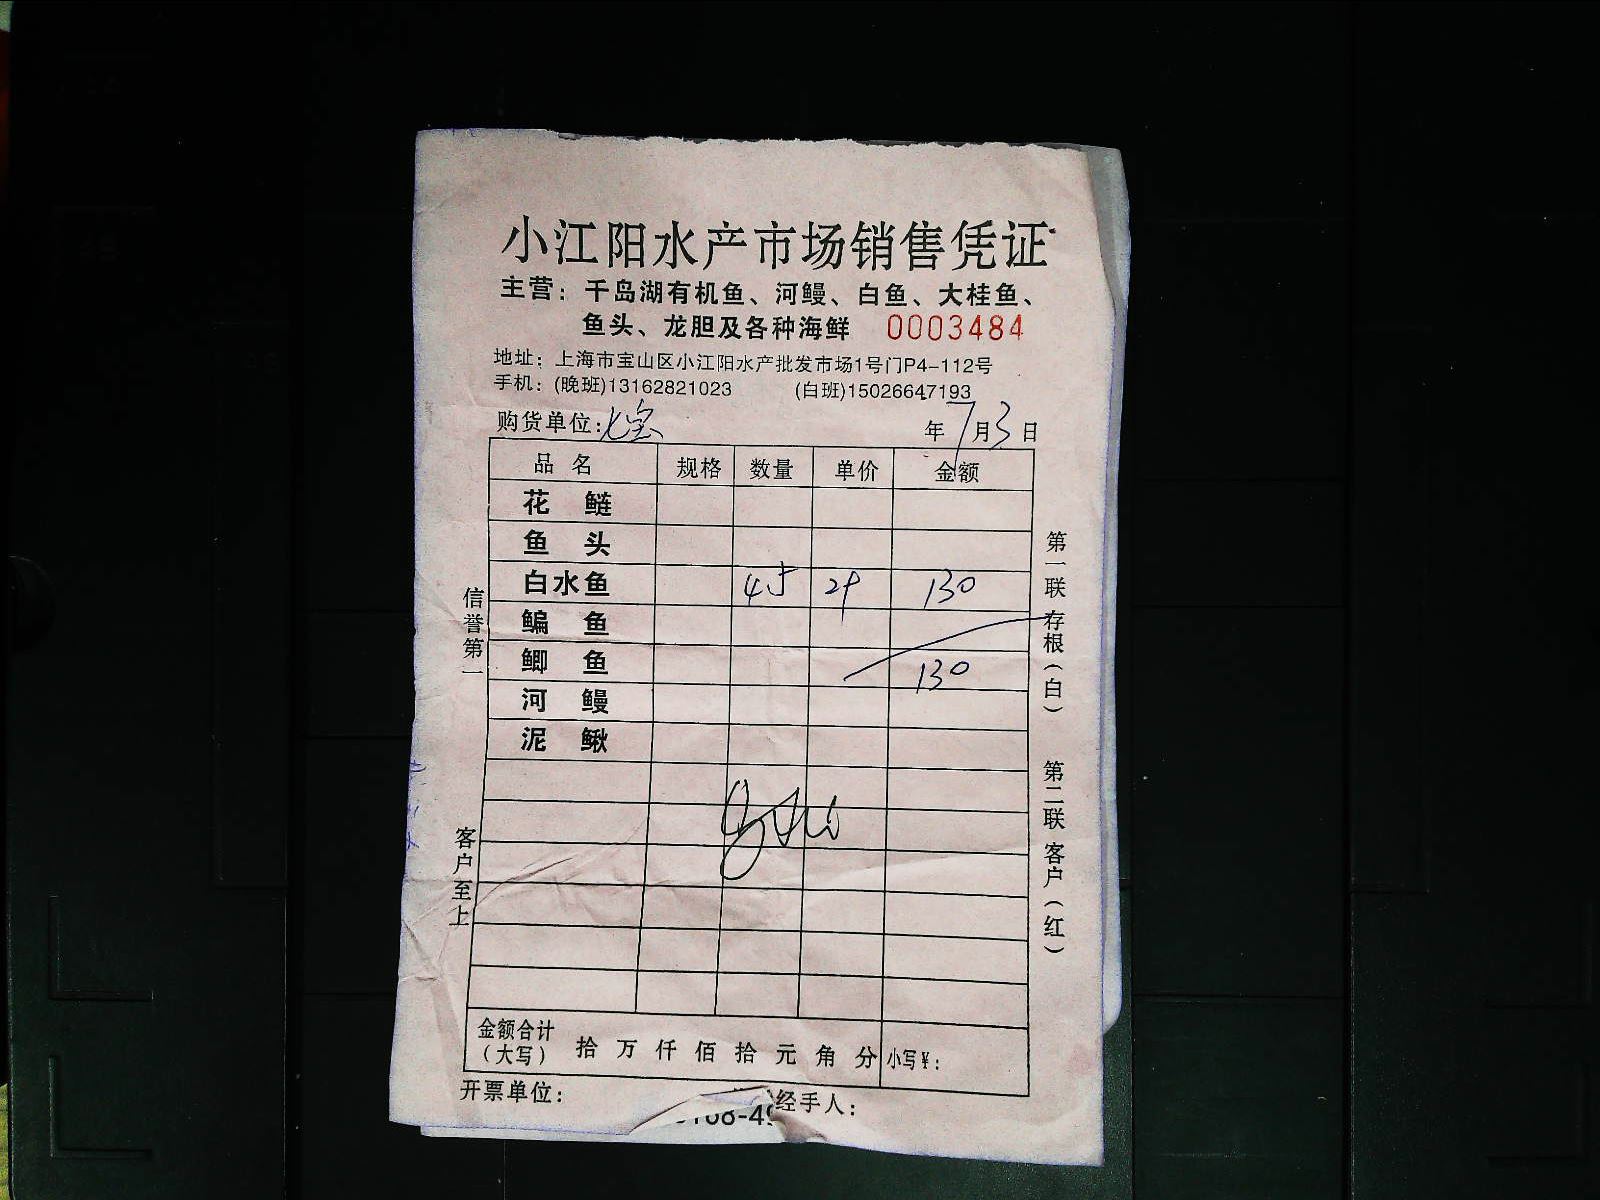 小江阳水产市场销售凭证
主营：千岛湖有机鱼、河鳗、白鱼、大桂鱼、
鱼头、龙胆及各种海鲜 0003484
地址：上海市宝山区小江阳水产批发市场1号门P4-112号
手机：(晚班)13162821023 (白班)15026647193
购货单位：七宝 年7月3日
品名 规格 数量 单价 金额
花鲢
鱼头
白水鱼 130
鳊鱼
鲫鱼 130
河鳗
泥鳅
金额合计
（大写） 拾 万 仟 佰 拾 元 角 分 小写¥：
开票单位： 经手人：
信誉第一
客户至上
第一联 存根（白）
第二联 客户（红）